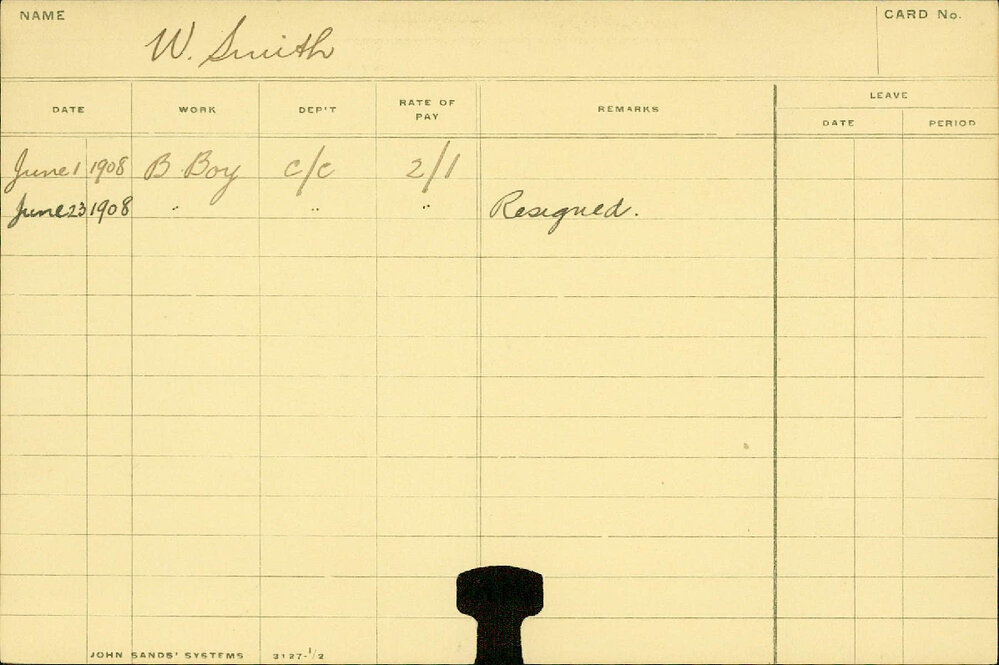 NAME W. Smith CARD No.
DATE WORK DEP'T RATE OF PAY REMARKS LEAVE
DATE PERIOD
June 1 1908 B. Boy c/c 2/1
June 23 1908 " " " Resigned.
JOHN SANDS' SYSTEMS 3127-1/2